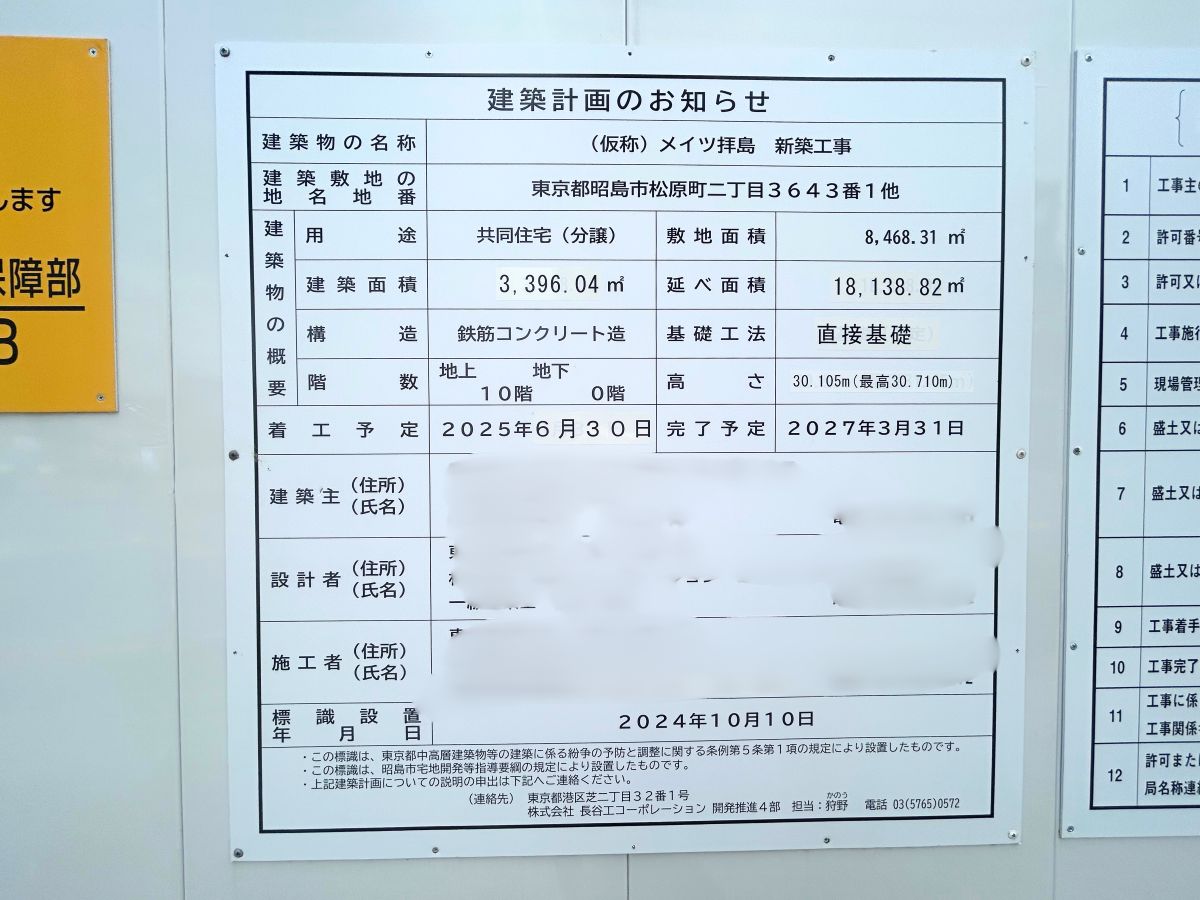 します
保障部
建築計画のお知らせ
建築物の名称 （仮称）メイツ拝島　新築工事
建築敷地の地名地番 東京都昭島市松原町二丁目３６４３番１他
建築物の概要
用途 共同住宅（分譲） 敷地面積 8,468.31 ㎡
建築面積 3,396.04 ㎡ 延べ面積 18,138.82 ㎡
構造 鉄筋コンクリート造 基礎工法 直接基礎
階数 地上 10階 地下 0階 高さ 30.105m(最高30.710m)
着工予定 2025年6月30日 完了予定 2027年3月31日
建築主（住所）（氏名）
設計者（住所）（氏名）
施工者（住所）（氏名）
標識設置年月日 2024年10月10日
・この標識は、東京都中高層建築物等の建築に係る紛争の予防と調整に関する条例第５条第１項の規定により設置したものです。
・この標識は、昭島市宅地開発等指導要綱の規定により設置したものです。
・上記建築計画についての説明の申出は下記へご連絡ください。
（連絡先） 東京都港区芝二丁目３２番１号
株式会社 長谷工コーポレーション 開発推進４部 担当：狩野 かのう 電話 03(5765)0572
1 工事主の
2 許可番号
3 許可又は
4 工事施行
5 現場管理
6 盛土又は
7 盛土又は
8 盛土又は
9 工事着手
10 工事完了
11 工事に係
工事関係者
12 許可または
局名称連絡